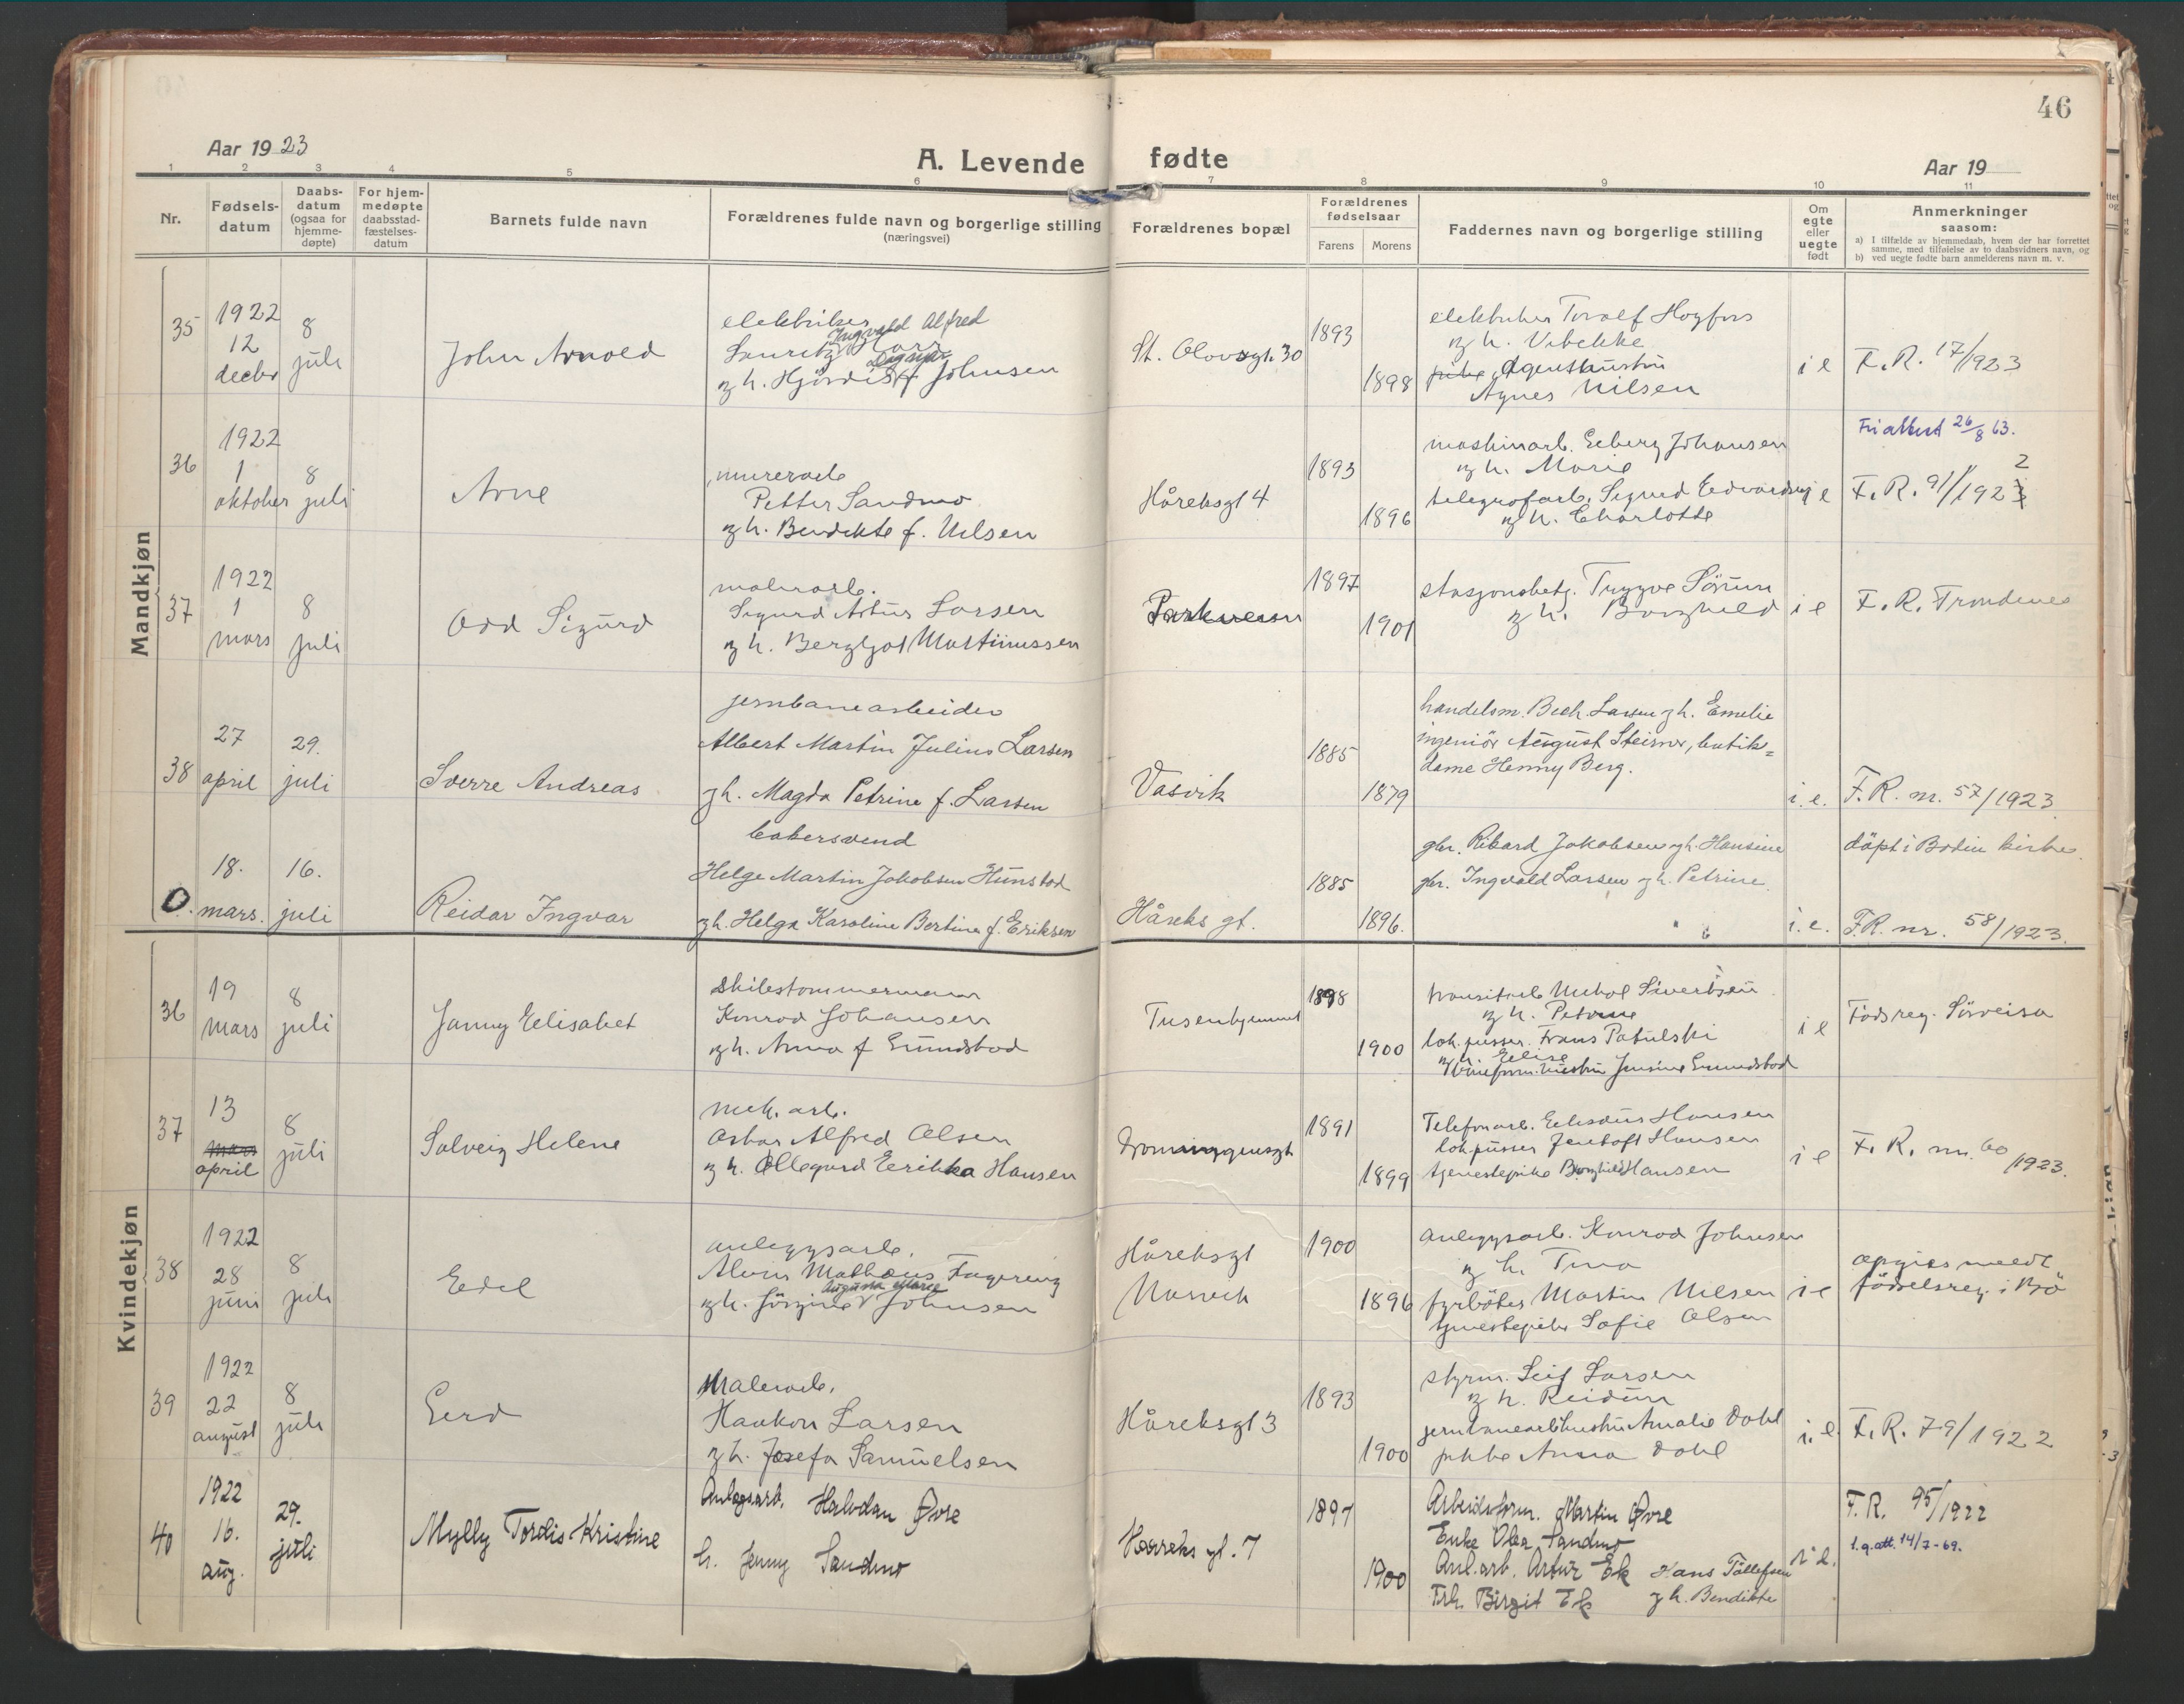 46
Aar 1923
A. Levende fødte
Aar 19
1 2 3 4 5 6 7 8 9 10 11
Nr.
Fødsels-
datum
Daabs-
datum
(ogsaa for
hjemme-
døpte)
For hjem-
medøpte
daabsstad-
fæstelses-
datum
Barnets fulde navn
Forældrenes fulde navn og borgerlige stilling
(næringsvei)
Forældrenes bopæl
Forældrenes
fødselsaar
Farens Morens
Faddernes navn og borgerlige stilling
Om
egte
eller
uegte
født
Anmerkninger
saasom:
a) I tilfælde av hjemmedaab, hvem der har forrettet
samme, med tilføielse av to daabsvidners navn, og
b) ved uegte fødte barn anmelderens navn m. v.
Mandkjøn
35
1922
12
decbr
8
juli
John Arnold
elektriker
Ingvald Alfred
Lauritz
Dagmar
og h. Hjördis f Johnsen
St. Olavsgt. 30
1893
1898
elektriker Toralf Hogfors
og h. Vibekke
Agenthustru
Agnes Nilsen
i e
F. R. 17/1923
36
1922
1
oktober
8
juli
Arne
murerarb
Petter Sandmo
og h. Bendikte f. Nilsen
Håreksgt 4
1893
1896
maskinarb. Edberg Johansen
og h. Marie
telegrafarb. Sigurd Edvardsen
og h. Charlotte
i e
Friattest 26/8 63.
2
F. R. 91/1923
37
1922
1
mars
8
juli
Odd Sigurd
malerarb.
Sigurd Artur Larsen
og h. Bergljot Martinussen
Parkveien
1897
1901
stasjonsbetj. Trygve Sörum
og h. Borghild
i e
F. R. Trondenes
38
27
april
29.
juli
Sverre Andreas
jernbanearbeider
Albert Martin Julius Larsen
g h. Magda Petrine f. Larsen
Vasvik
1885
1879
handelsm. Bech. Larsen g h. Emelie
ingeniör August Steiner, butik=
dame Henny Berg.
i. e.
F. R. nr. 57/1923
0.
18.
mars.
16.
juli
Reidar Ingvar
bakersvend
Helge Martin Jakobsen Hunstad
g h. Helga Karoline Bertine f. Eriksen
Håreks gt.
1885
1896.
gbr. Rikard Jakobsen g h. Hansine
gbr. Ingvald Larsen g h. Petrine.
i. e.
döpt i Bodin kirke.
F. R. nr. 58/1923.
Kvindekjøn
36
19
mars
8
juli
Janny Elisabet
skibstømmermann
Konrad Johansen
og h. Anna f Grundstad
Tusenhjemmet
1898
1900
transitarb Nubol Sivertsen
og h. Petrine
lok. pusser. Frans Patulski
og h. Elise
hustru Jensine Grundstad
i e
Födsreg. Sörreisa
37
13
mars
april
8
juli
Solveig Helene
mek. arb.
Oskar Alfred Olsen
og h. Ollegard Erikka Hansen
Dronningensgt
1891
1899
Telefonarb. Eliseus Hansen
lok. pusser Jentoft Hansen
tjenestepike Borghild Hansen
i e
F. R. nr. 60
/1923.
38
1922
28
juni
8
juli
Edel
anleggsarb.
Alvin Mathæus Fagereng
Augusta Marie
og h. Jörgine Johnsen
Håreksgt
Narvik
1900
1896
anleggsarb. Konrad Johnsen
og h. Tina
fyrböter Martin Nilsen
tjenestepike Sofie Olsen
i e
opgies meldt
födselsreg. i Bö
39
1922
22
august
8
juli
Gerd
Malerarb.
Haakon Larsen
og h. Josefa Samuelsen
Håreksgt 3
1893
1900
styrm. Leif Larsen
og h. Reidun
jernbanearb. hustru Amalie Dahl
pike Anna Dahl
i. e.
F. R. 79/1922
40
1922
16.
aug.
29.
juli
Mylly Tordis Kristine
Anlegsarb. Halvdan Øvre
h. Jenny Sandmo
Haareks gt. 7
1897
1900
Arbeidsform. Martin Øvre
Enke Olea Sandmo
Anl. arb. Artur Ek Hans Tollefsen
Frk. Birgit Ek g h. Bendikte
i e.
F. R. 95/1922
l. g. att. 14/7-69.